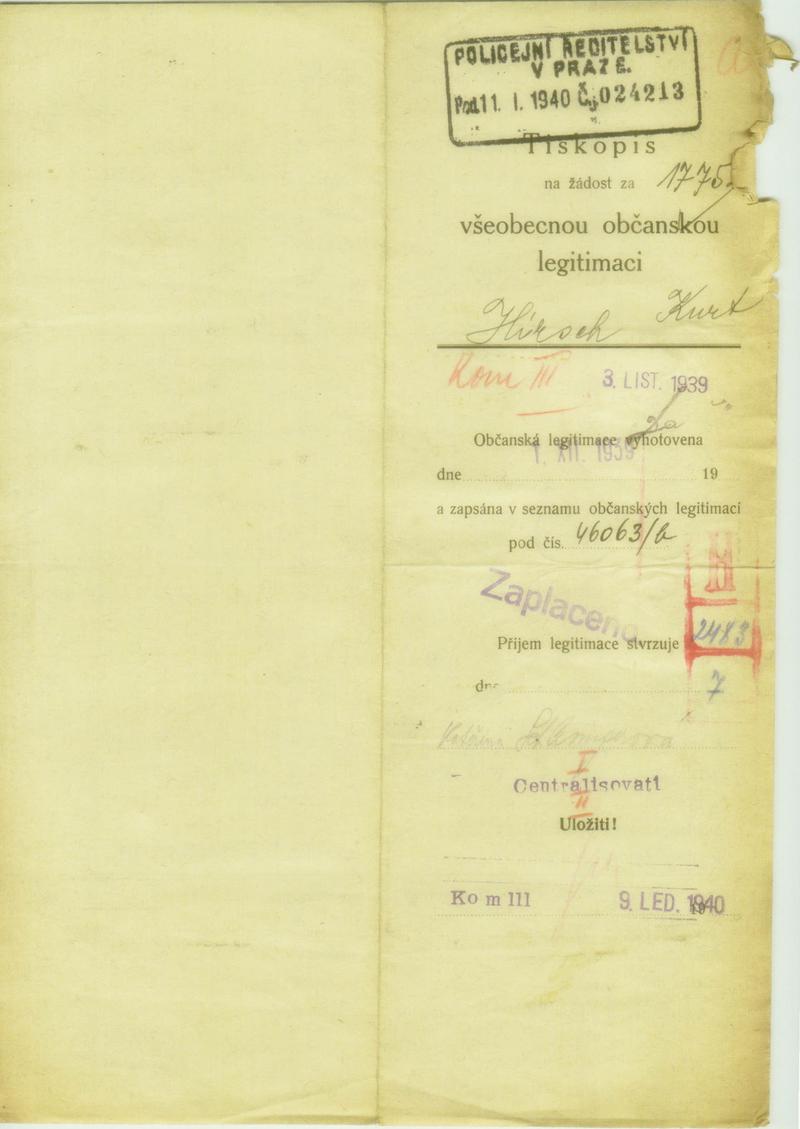 POLICEJNÍ ŘEDITELSTVÍ
V PRAZE.
Pod. 11. I. 1940 Čj. 024213
Tiskopis
na žádost za 1775
všeobecnou občanskou
legitimaci
Hirsch Kurt
Kom III 3. LIST. 1939
Občanská legitimace vyhotovena
1. XII. 1939
dne 19
a zapsána v seznamu občanských legitimací
pod čís. 46063/b
Zaplaceno
Příjem legitimace stvrzuje 2483
dne 7
I
Centralisovati
II
Uložiti!
Kom III 9. LED. 1940